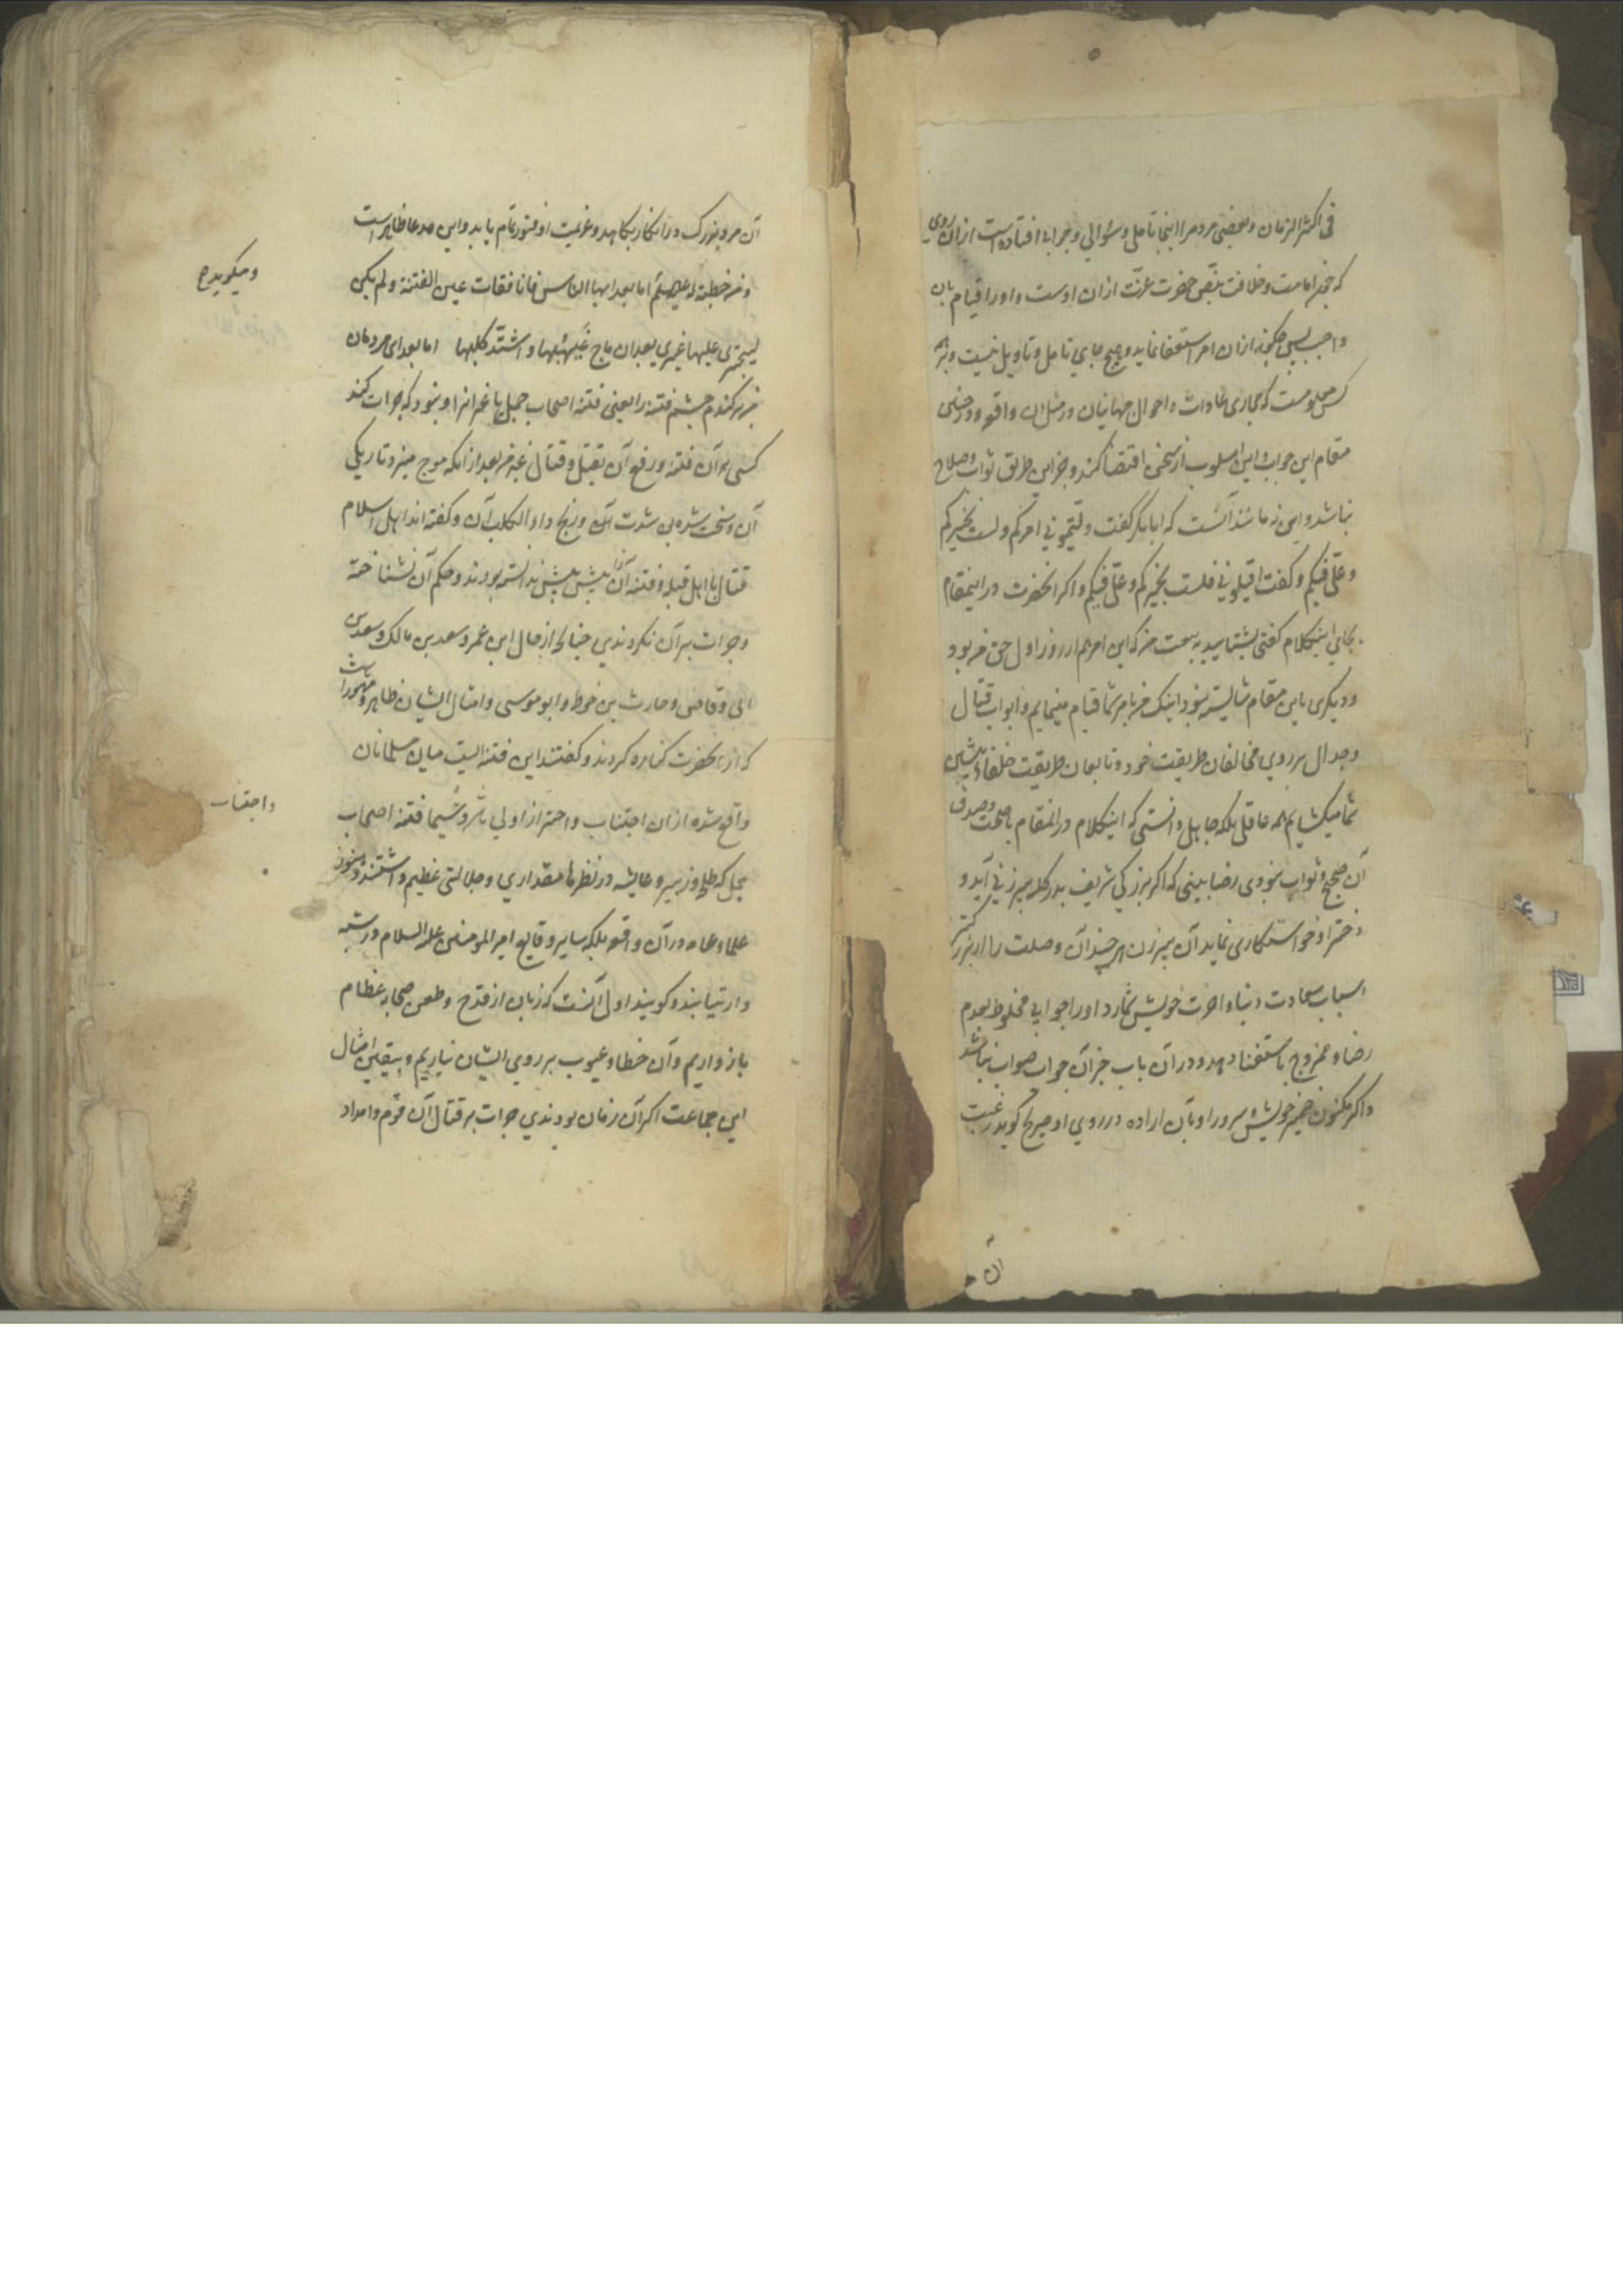 فی اکثر الزمان و بعضی مردم را اینجا تاملی و سؤالی و جوابی افتاده است ازان روی
که چون امامت و خلافت بنص حضرت عزت ازان اوست و او را قیام بان
واجب پس چگونه ازان امر استعفا نماید و هیچ جای تامل و تاویل نیست و بر همه
کس معلومست که مجاری عادات و احوال جهانیان در مثل ان واقعه و در چنین
مقام این جواب و این اسلوب از سخن اقتضا کند و جز این طریق ثواب و صلاح
نباشد و این نه مانند آنست که ابا بکر گفت ولّیتمونی امرکم و لست بخیرکم
و علیّ فیکم و گفت اقیلونی فلست بخیرکم و علیّ فیکم و اگر انحضرت در اینمقام
بجای اینکلام گفتی بشتابید به بیعت من که این امر هم از روز اول حق من بود
و دیگری باین مقام شایسته نبود اینک من بامر شما قیام مینمایم و ابواب قتال
و جدال بر روی مخالفان طریقت خود و تابعان طریقت خلفاء پیشین
شما میکشایم همه عاقل بلکه جاهل دانستی که اینکلام در انمقام با صحت و صدق
آن صحیح و ثواب نبودی رضا بینی که اگر بزرگی شریف بدر کلبه پیرزنی آید و
دختر او خواستکاری نماید آن پیرزن هر چند آن وصلت را از بزرگتر
اسباب سعادت دنیا و اخرت خویش شمارد او را جوابی مخلوط بعدم
رضا و ممزوج باستغنا دهد و در آن باب جز آن جواب صواب نباشد
و اگر مکنون ضمیر خویش و سرور او بآن اراده در روی او صریح گوید رغبت
آن
آن مرد بزرک در انکار بکاهد و عزیمت او فتور تمام یابد و این مدعا ظاهر است
و من خطبة له علیه السلم اما بعد ایها الناس فانا فقات عین الفتنة و لم یکن
لیجتری علیها غیری بعد ان ماج غیهبها و اشتدّ کلبها اما بعد ای مردمان
من بر کندم چشم فتنه را یعنی فتنه اصحاب جمل یا غیر انرا و نبود که جرات کند
کسی بر آن فتنه و رفع آن بقتل و قتال غیر من بعد از انکه موج میزد تاریکی
آن و سخت شده بود شدت آن و رنج و اذاء الکلب آن و گفته اند اهل اسلام
قتال با اهل قبله و فتنه آن را پیش ندانسته بودند و حکم آن نشناخته
و جرات بر آن نکردندی چنانکه از حال ابن عمر و سعد بن مالک و سعد بن
ابی وقاص و حارث بن خوط و ابو موسی و امثال ایشان ظاهر و مشهور است
که از انحضرت کناره کردند و گفتند این فتنه ایست میان مسلمانان
واقع شده ازان اجتناب و احتراز اولی باشد و سیّما فتنه اصحاب
جمل که طلحه و زبیر و عایشه در نظرها مقداری و جلالتی عظیم داشتند و هنوز
علماء عامه در آن واقعه بلکه سایر وقایع امیر المومنین علیه السلام در شبهه
و ارتیابند و گویند اولی آنست که زبان از قدح و طعن صحابه عظام
باز داریم و آن خطا و عیوب بر روی ایشان نیاریم و بیقین امثال
این جماعت اگر آن زمان بودندی جرات بر قتال آن قوم و امداد
و میگوید ع
و اجتناب